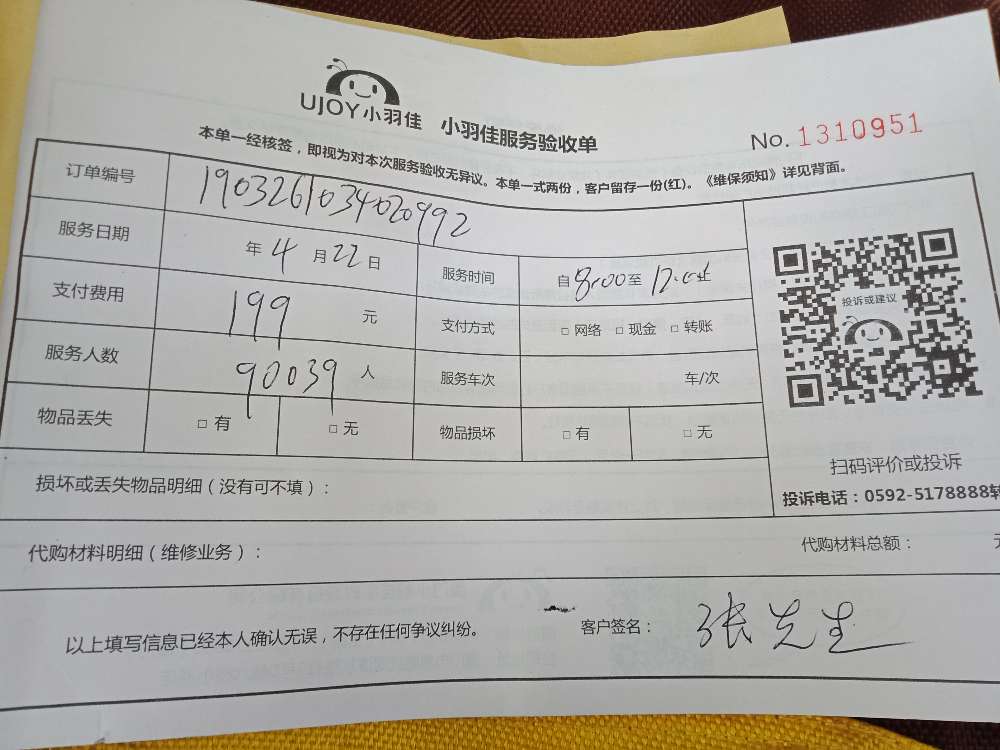 UJOY小羽佳 小羽佳服务验收单
No. 1310951
本单一经核签，即视为对本次服务验收无异议。本单一式两份，客户留存一份(红)。《维保须知》详见背面。
订单编号 1903261034020992
服务日期 年 4 月 22 日 服务时间 自 8:00 至
支付费用 199 元 支付方式 □ 网络 □ 现金 □ 转账
服务人数 90039 人 服务车次 车/次
物品丢失 □ 有 □ 无 物品损坏 □ 有 □ 无
投诉或建议
扫码评价或投诉
投诉电话：0592-5178888转
损坏或丢失物品明细（没有可不填）：
代购材料明细（维修业务）： 代购材料总额： 元
以上填写信息已经本人确认无误，不存在任何争议纠纷。 客户签名： 张先生